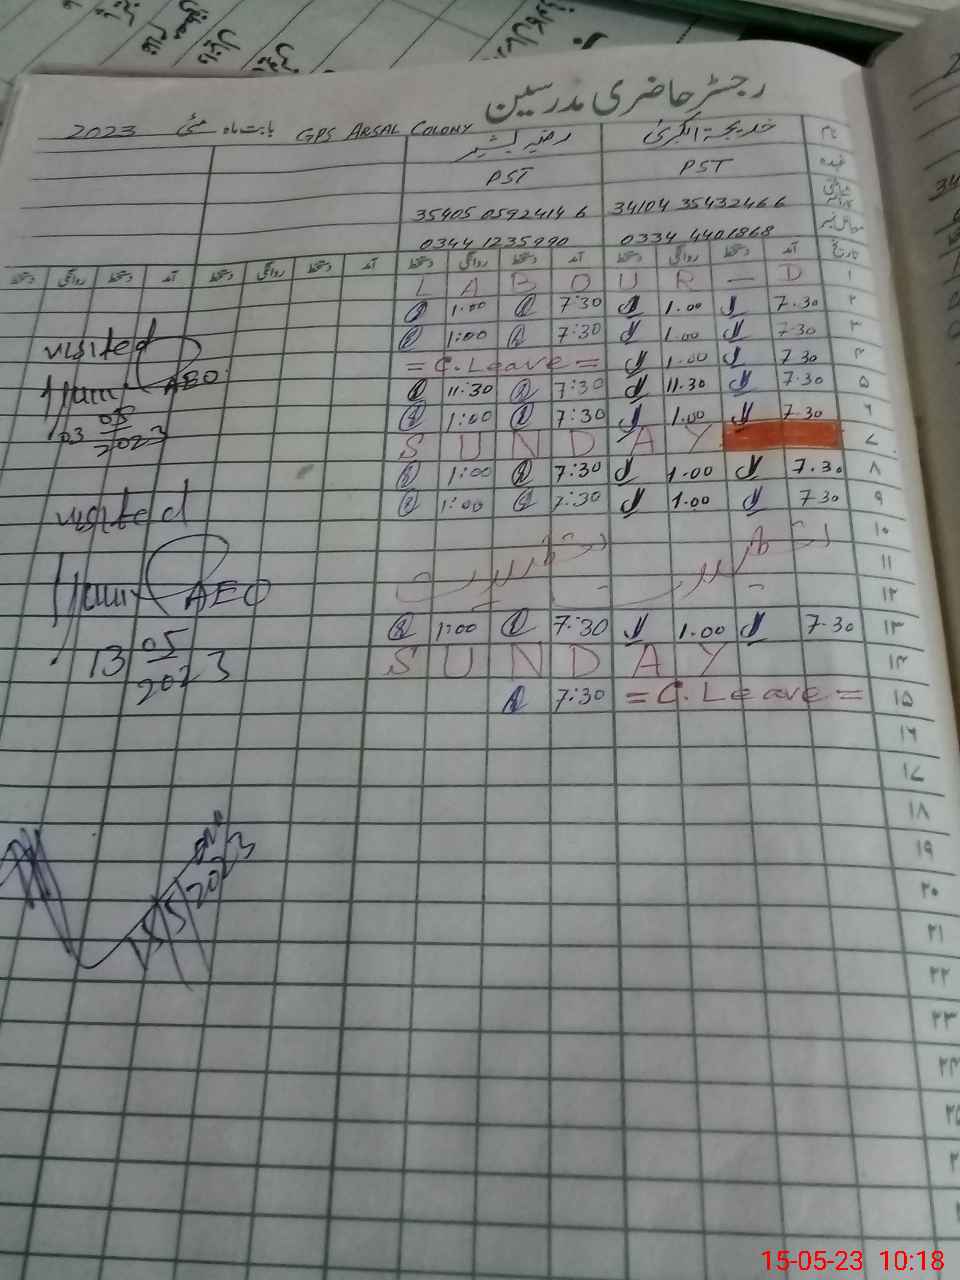 رجسٹر حاضری مدرسین
2023 بابت ماہ مئی GPS ARSAL COLONY
نام خدیجۃ الکبریٰ رضیہ بشیر
عہدہ PST PST
34104 35432466 35405 0592414 6
موبائل نمبر 0334 4401868 0344 1235990
تاریخ آمد دستخط روانگی دستخط آمد دستخط روانگی دستخط آمد دستخط روانگی دستخط آمد دستخط روانگی دستخط
۱ LABOUR — D
۲ 7.30 1.00 7:30 1:00
۳ 7.30 1.00 7:30 1:00
۴ 7.30 1.00 = C. Leave =
۵ 7.30 11.30 7:30 11:30
۶ 7.30 1.00 7:30 1:00
۷ SUNDAY
۸ 7.30 1.00 7:30 1:00
۹ 7.30 1.00 7:30 1:00
۱۰
۱۱
۱۲
۱۳ 7.30 1.00 7:30 1:00
۱۴ SUNDAY
۱۵ = C. Leave = 7:30
۱۶
۱۷
۱۸
۱۹
۲۰
۲۱
۲۲
۲۳
visited
AEO
03 05
2023
visited
AEO
13 05
2023
15/5/2023
15-05-23 10:18